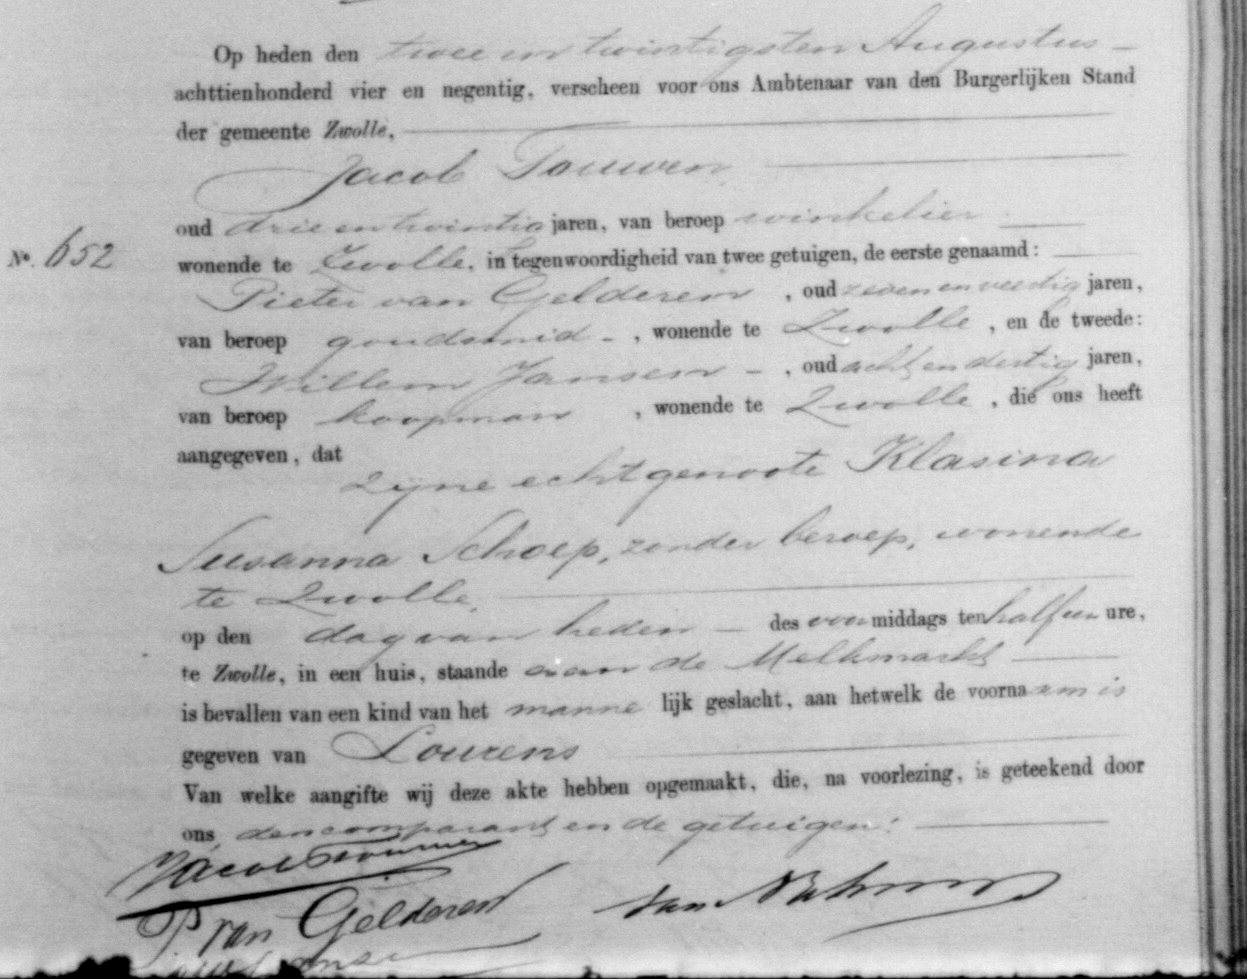 Op heden den twee en twintigsten Augustus
achttienhonderd vier en negentig, verscheen voor ons Ambtenaar van den Burgerlijken Stand
der gemeente Zwolle,
Jacob Touwen
oud drie en twintig jaren, van beroep winkelier
No. 652
wonende te Zwolle, in tegenwoordigheid van twee getuigen, de eerste genaamd:
Pieter van Gelderen, oud zeven en veertig jaren,
van beroep goudsmid, wonende te Zwolle, en de tweede:
Willem Jansen, oud acht en dertig jaren,
van beroep koopman, wonende te Zwolle, die ons heeft
aangegeven, dat
zijne echtgenoote Klasina
Susanna Schoep, zonder beroep, wonende
te Zwolle,
op den dag van heden des voormiddags ten half een ure,
te Zwolle, in een huis, staande aan de Melkmarkt
is bevallen van een kind van het mannelijk geslacht, aan hetwelk de voornaam is
gegeven van Lourens
Van welke aangifte wij deze akte hebben opgemaakt, die, na voorlezing, is geteekend door
ons, den comparant en de getuigen.
Jacob Touwen
P van Gelderen